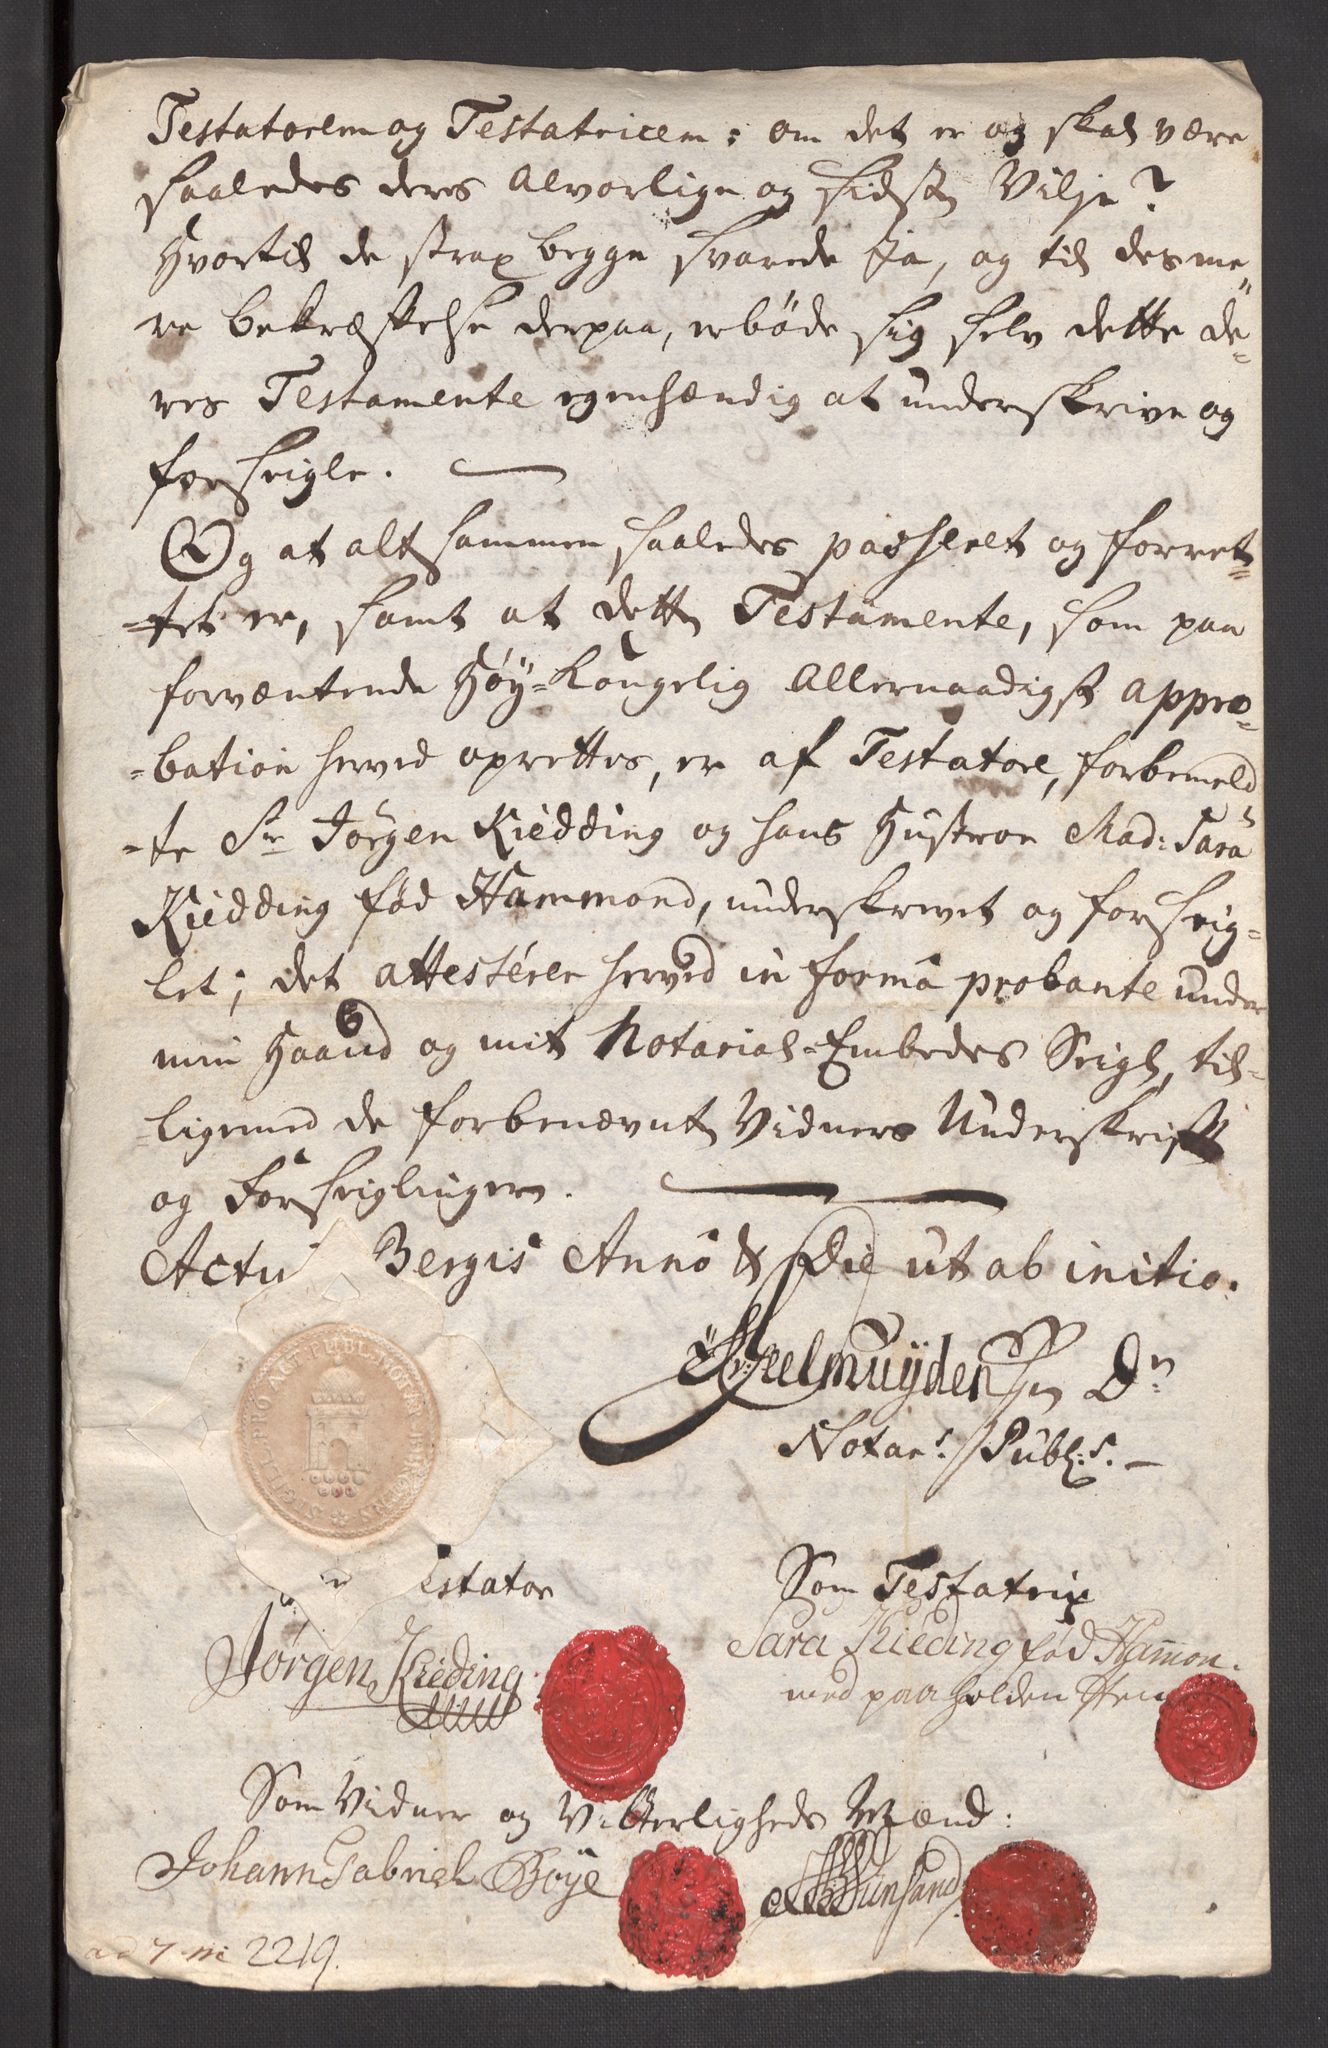 Testatorem og Testatricem: om det er og skal være
saaledes deres Alvorlige og sidste Vilje?
Hvortil de strax begge svarede Ja, og til desme„
re bekræftelse derpaa, erbøde sig selv dette de„
res Testamente egenhændig at underskrive og
forseigle.
Og at alt sammen saaledes passeret og forret„
„tet er, samt at dette Testamente, som paa
forventende Høy-Kongelig Allernaadigst appro„
„bation herved oprettes, er af Testatore, forbemeld„
„te Sr Jörgen Kiedding og hans Hustroe Mad: Sara
Kiedding fød Hammond, underskrevet og forseig„
let; det attesterer herved in forma probante under
min Haand og mit Notarial-Embedes Seigl, til„
„ligemed de forbenævnte Vidners Underskrift
og Forseiglinger.
Actu Bergis Anno & Die ut ab initio.
Heelmuyden Sn Dn
Notars. Publ:s.
SIGILL PRO ACT PUBL NOTAR
estator
Som Testatrix
Jørgen Kieding
Sara Kieding fød Hamon.
med paa holden Pen
Som Vidner og Vitterligheds Mænd:
Johann Gabriel Böye
Sand
ad 7 m 2219.